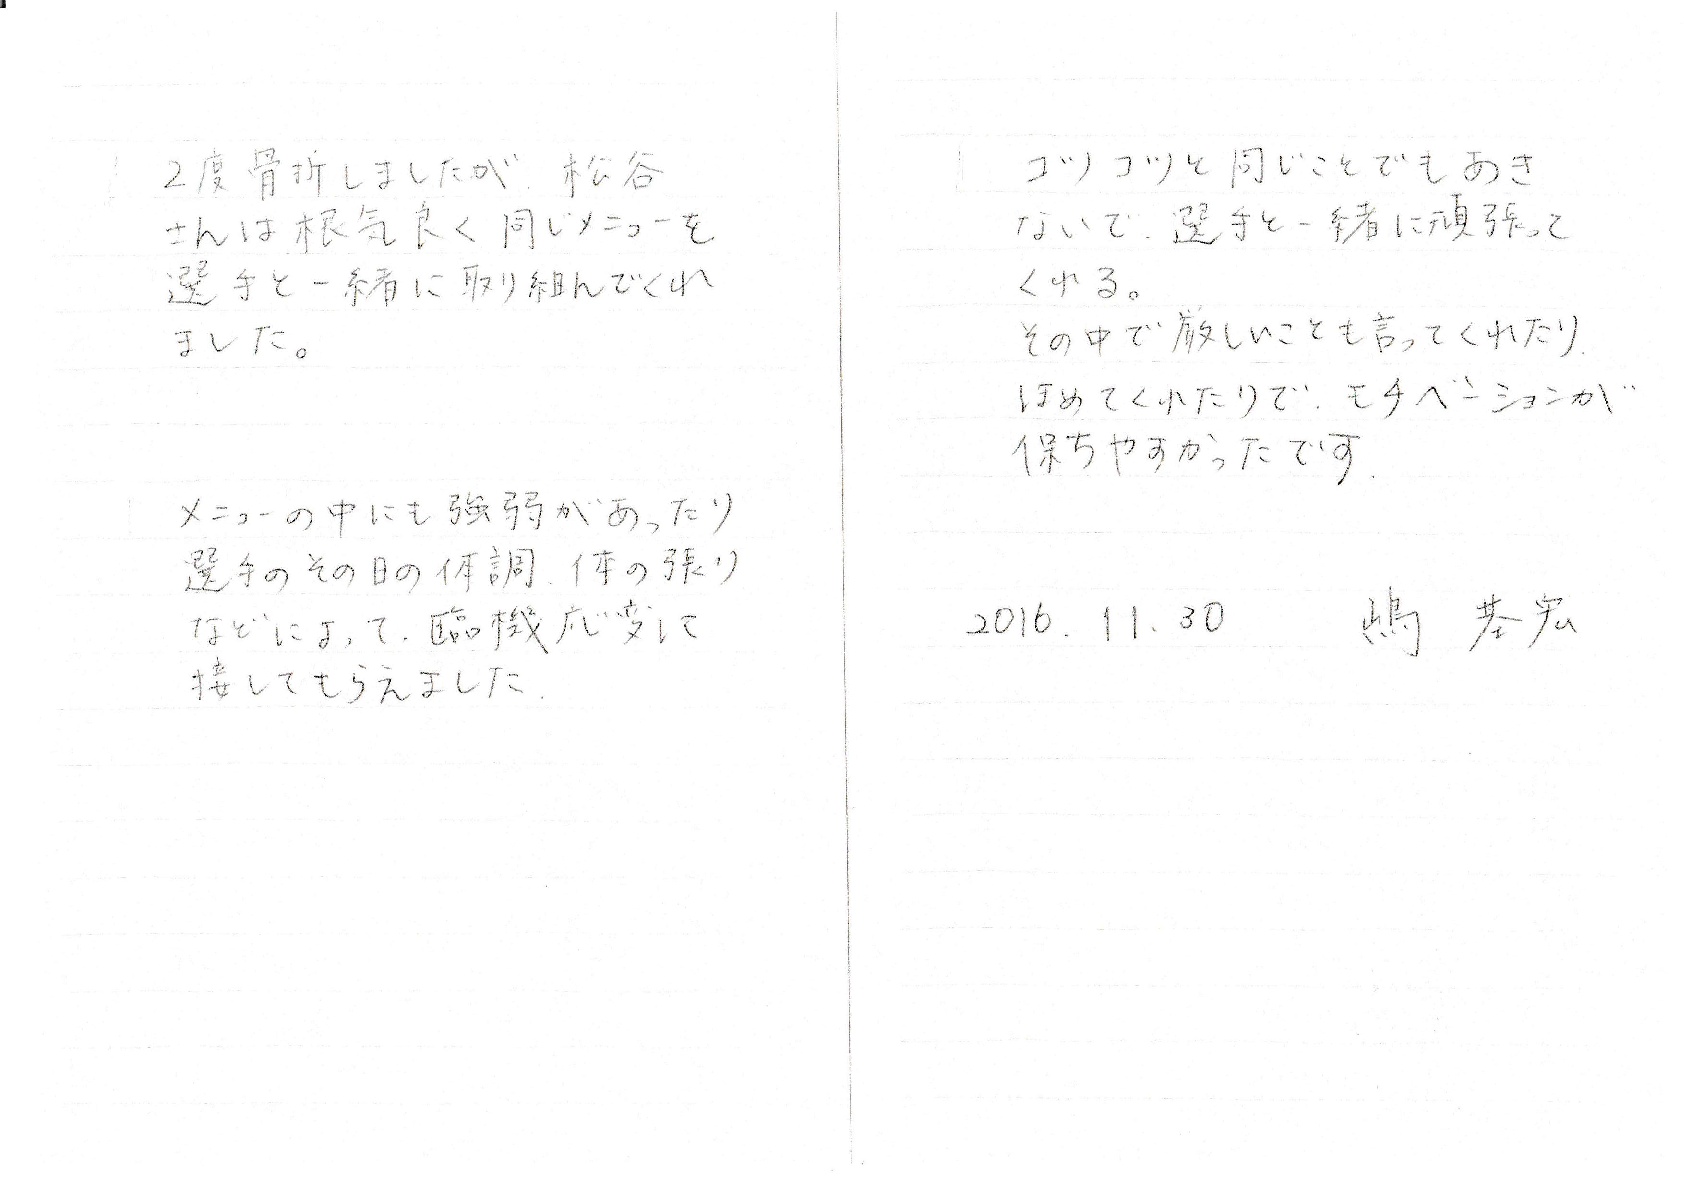 2度骨折しましたが、松谷
さんは根気良く同じメニューを
選手と一緒に取り組んでくれ
ました。
メニューの中にも強弱があったり
選手のその日の体調、体の張り
などによって、臨機応変に
接してもらえました。
コツコツと同じことでもあき
ないで、選手と一緒に頑張って
くれる。
その中で厳しいことも言ってくれたり、
ほめてくれたりで、モチベーションが
保ちやすかったです。
2016.11.30 嶋 基宏